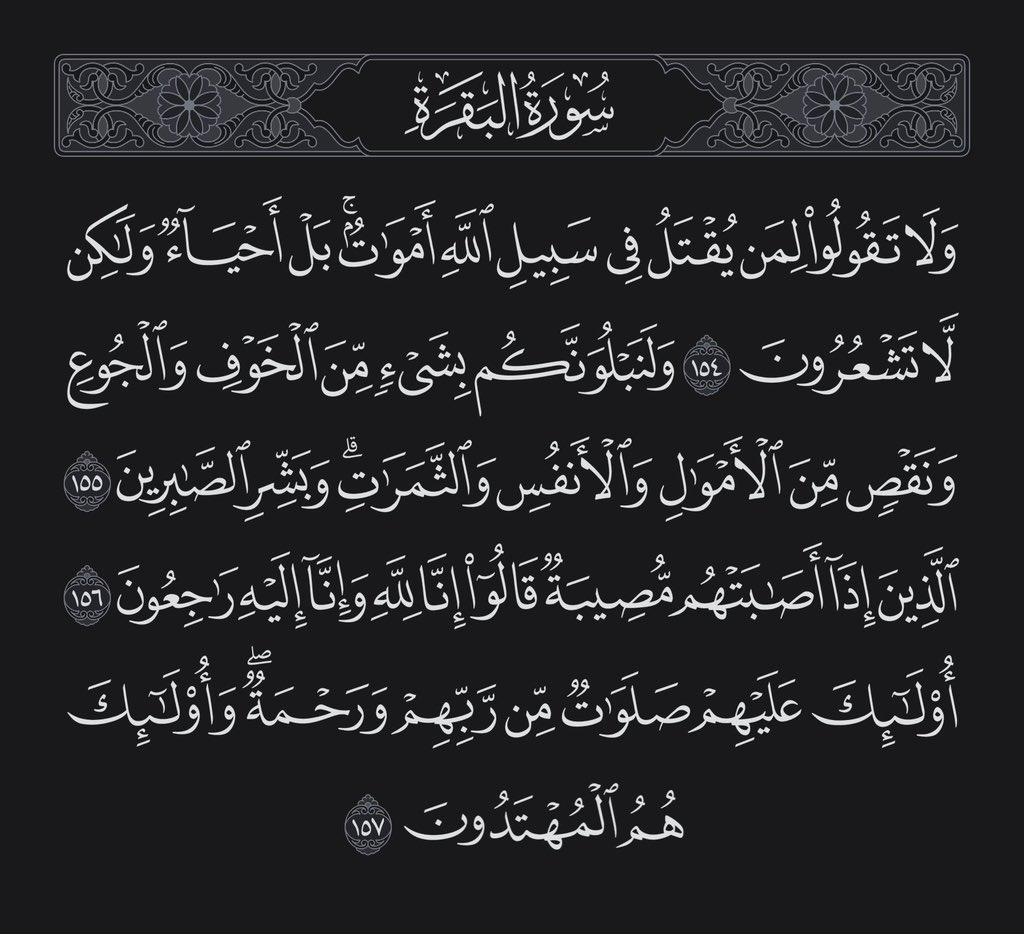 سُورَةُ البَقَرَةِ
وَلَا تَقُولُواْ لِمَن يُقۡتَلُ فِي سَبِيلِ ٱللَّهِ أَمۡوَٰتُۢۚ بَلۡ أَحۡيَآءٞ وَلَٰكِن
لَّا تَشۡعُرُونَ ١٥٤ وَلَنَبۡلُوَنَّكُم بِشَيۡءٖ مِّنَ ٱلۡخَوۡفِ وَٱلۡجُوعِ
وَنَقۡصٖ مِّنَ ٱلۡأَمۡوَٰلِ وَٱلۡأَنفُسِ وَٱلثَّمَرَٰتِۗ وَبَشِّرِ ٱلصَّٰبِرِينَ ١٥٥
ٱلَّذِينَ إِذَآ أَصَٰبَتۡهُم مُّصِيبَةٞ قَالُوٓاْ إِنَّا لِلَّهِ وَإِنَّآ إِلَيۡهِ رَٰجِعُونَ ١٥٦
أُوْلَٰٓئِكَ عَلَيۡهِمۡ صَلَوَٰتٞ مِّن رَّبِّهِمۡ وَرَحۡمَةٞۖ وَأُوْلَٰٓئِكَ
هُمُ ٱلۡمُهۡتَدُونَ ١٥٧